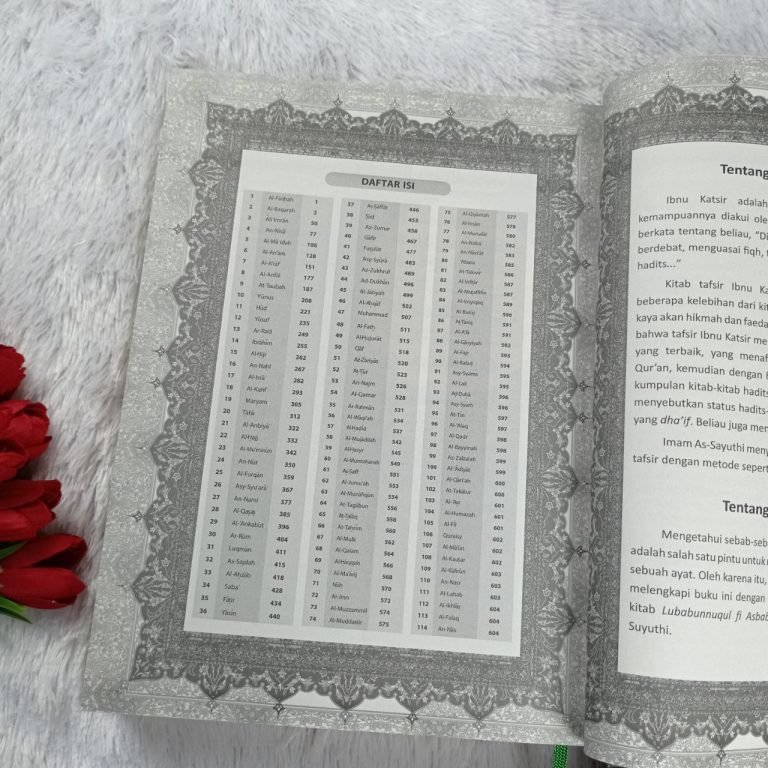 DAFTAR ISI
1 Al-Fātiḥah 1
2 Al-Baqarah 2
3 Āli 'Imrān 50
4 An-Nisā' 77
5 Al-Mā'idah 106
6 Al-An'am 128
7 Al-A'rāf 151
8 Al-Anfāl 177
9 At-Taubah 187
10 Yūnus 208
11 Hūd 221
12 Yūsuf 235
13 Ar-Ra'd 249
14 Ibrāhīm 255
15 Al-Ḥijr 262
16 An-Naḥl 267
17 Al-Isrā' 282
18 Al-Kahf 293
19 Maryam 305
20 Ṭāhā 312
21 Al-Anbiyā' 322
22 Al-Ḥajj 332
23 Al-Mu'minūn 342
24 An-Nūr 350
25 Al-Furqān 359
26 Asy-Syu'arā' 367
27 An-Naml 377
28 Al-Qaṣaṣ 385
29 Al-'Ankabūt 396
30 Ar-Rūm 404
31 Luqmān 411
32 As-Sajdah 415
33 Al-Aḥzāb 418
34 Saba' 428
35 Fāṭir 434
36 Yāsīn 440
37 Aṣ-Ṣāffāt 446
38 Ṣād 453
39 Az-Zumar 458
40 Gāfir 467
41 Fuṣṣilat 477
42 Asy-Syūrā 483
43 Az-Zukhruf 489
44 Ad-Dukhān 496
45 Al-Jāṡiyah 499
46 Al-Aḥqāf 502
47 Muhammad 507
48 Al-Fatḥ 511
49 Al-Ḥujurāt 515
50 Qāf 518
51 Aż-Żāriyāt 520
52 Aṭ-Ṭūr 523
53 An-Najm 526
54 Al-Qamar 528
55 Ar-Raḥmān 531
56 Al-Wāqi'ah 534
57 Al-Ḥadīd 537
58 Al-Mujādilah 542
59 Al-Ḥasyr 545
60 Al-Mumtaḥanah 549
61 Aṣ-Ṣaff 551
62 Al-Jumu'ah 553
63 Al-Munāfiqūn 554
64 At-Tagābun 556
65 Aṭ-Ṭalāq 558
66 At-Taḥrīm 560
67 Al-Mulk 562
68 Al-Qalam 564
69 Al-Ḥāqqah 566
70 Al-Ma'ārij 568
71 Nūḥ 570
72 Al-Jinn 572
73 Al-Muzzammil 574
74 Al-Muddaṡṡir 575
75 Al-Qiyāmah 577
76 Al-Insān 578
77 Al-Mursalāt 580
78 An-Naba' 582
79 An-Nāzi'āt 583
80 'Abasa 585
81 At-Takwīr 586
82 Al-Infiṭār 587
83 Al-Muṭaffifīn 587
84 Al-Insyiqāq 589
85 Al-Burūj 590
86 Aṭ-Ṭāriq 591
87 Al-A'lā 591
88 Al-Gāsyiyah 592
89 Al-Fajr 593
90 Al-Balad 594
91 Asy-Syams 595
92 Al-Lail 595
93 Aḍ-Ḍuḥā 596
94 Asy-Syarḥ 596
95 At-Tīn 597
96 Al-'Alaq 597
97 Al-Qadr 598
98 Al-Bayyinah 598
99 Az-Zalzalah 599
100 Al-'Ādiyāt 599
101 Al-Qāri'ah 600
102 At-Takāṡur 600
103 Al-'Aṣr 601
104 Al-Humazah 601
105 Al-Fīl 601
106 Quraisy 602
107 Al-Mā'ūn 602
108 Al-Kauṡar 602
109 Al-Kāfirūn 603
110 An-Naṣr 603
111 Al-Lahab 603
112 Al-Ikhlāṣ 604
113 Al-Falaq 604
114 An-Nās 604
Tentang
Ibnu Katsir adalah
kemampuannya diakui ole
berkata tentang beliau, "Di
berdebat, menguasai fiqh, t
hadits..."
Kitab tafsir Ibnu Ka
beberapa kelebihan dari kit
kaya akan hikmah dan faeda
bahwa tafsir Ibnu Katsir me
yang terbaik, yang menaf
Qur'an, kemudian dengan h
kumpulan kitab-kitab hadits
menyebutkan status hadits-
yang dha'if. Beliau juga men
Imam As-Sayuthi meny
tafsir dengan metode sepert
Tentang
Mengetahui sebab-seb
adalah salah satu pintu untuk m
sebuah ayat. Oleh karena itu,
melengkapi buku ini dengan
kitab Lubabunnuqul fi Asbab
Suyuthi.